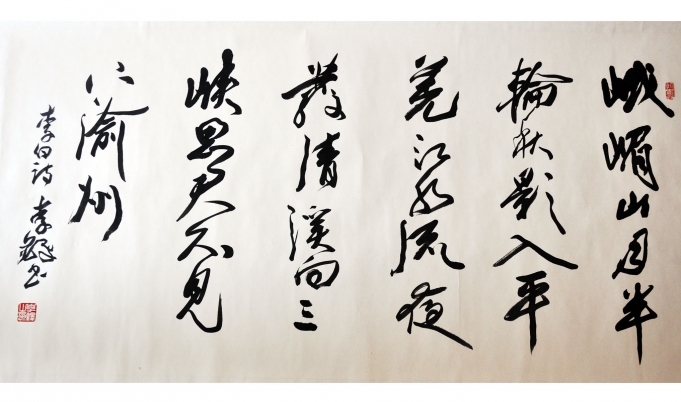 峨嵋山月半
輪秋影入平
羌江水流夜
發清溪向三
峽思君不見
下渝州
李白詩 李 书